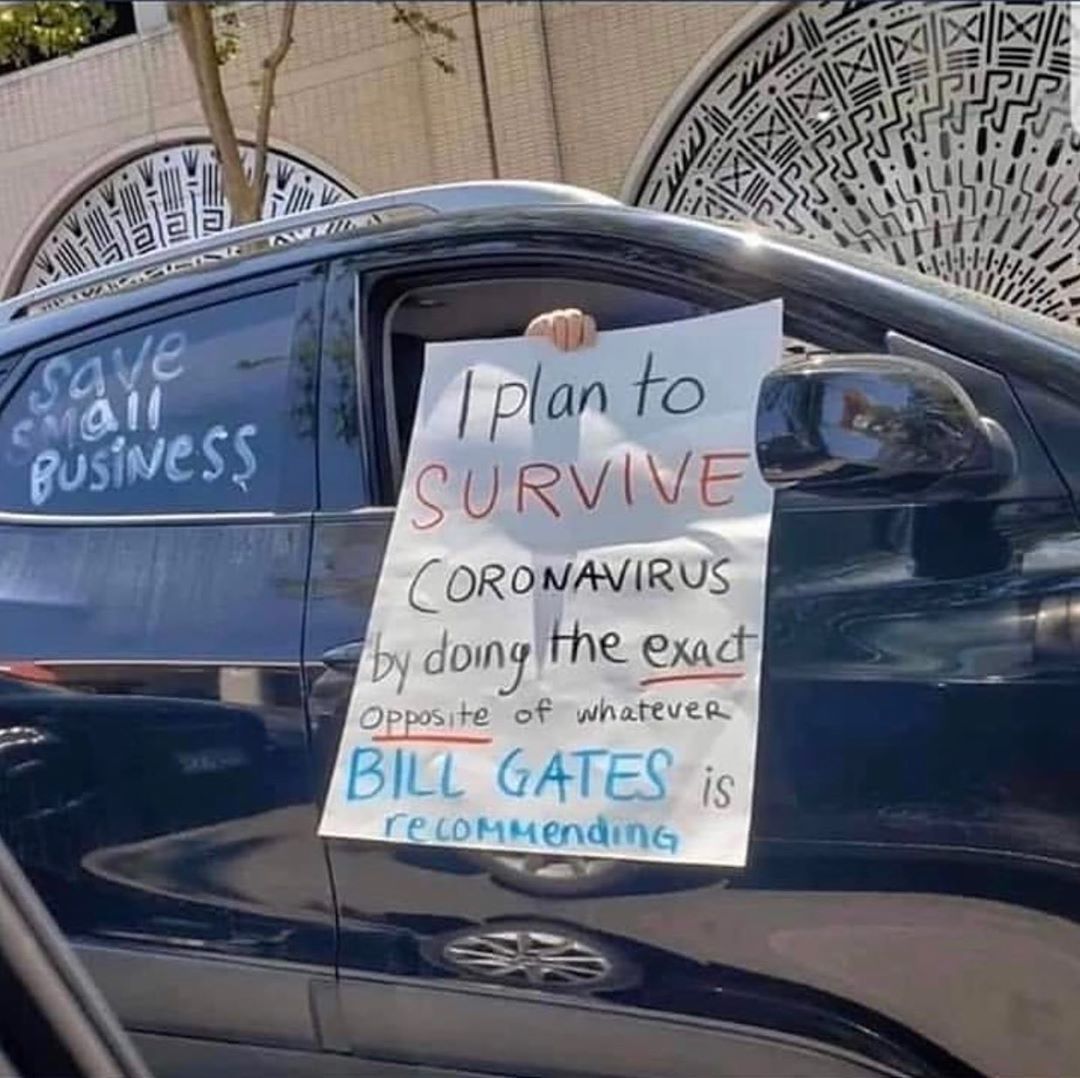 Save
Small
BUSINESS
I plan to
SURVIVE
CORONAVIRUS
by doing the exact
opposite of whatever
BILL GATES is
recommending